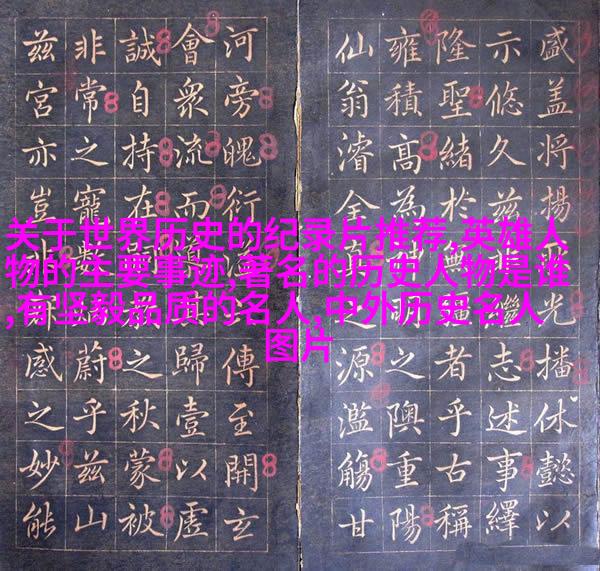 关于世界历史的纪录片推荐,英雄人
物的主要事迹,著名的历史人物是谁
,有坚毅品质的名人,中外历史名人
图片
盛盖将揚光播休懿以
示悠久茲繼志述事繹
隆聖緒於無者乎古稱
雍積高為之隩重陽
仙翁濬全源濫觴甘
河旁魄衍傳至開玄
會衆流而歸壹以虛
誠自持在之秋蒙被
非常之寵蔚乎茲山
茲宮亦豈非感之妙能